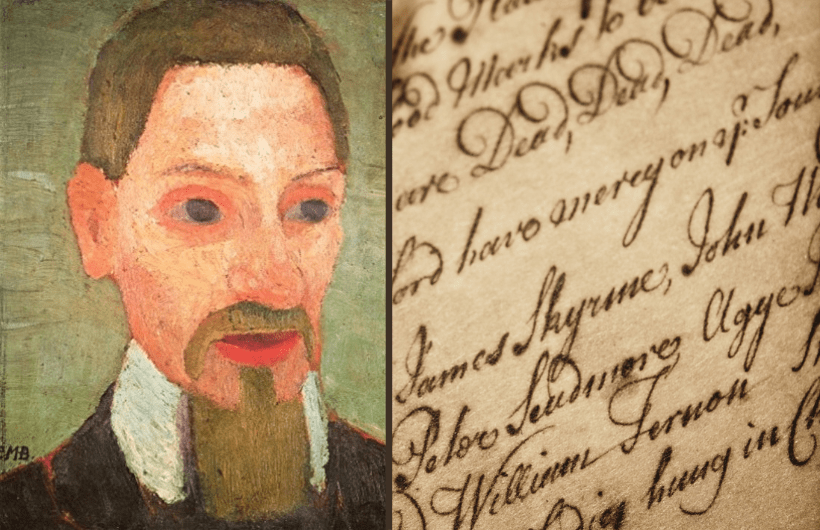 PMB.
the
Marks to be
are Dead, Dead, Dead,
ord have mercy on yr. Sou
James Skyrme, John
Peter Scudmore Agge
William Fernon
hung in Ch